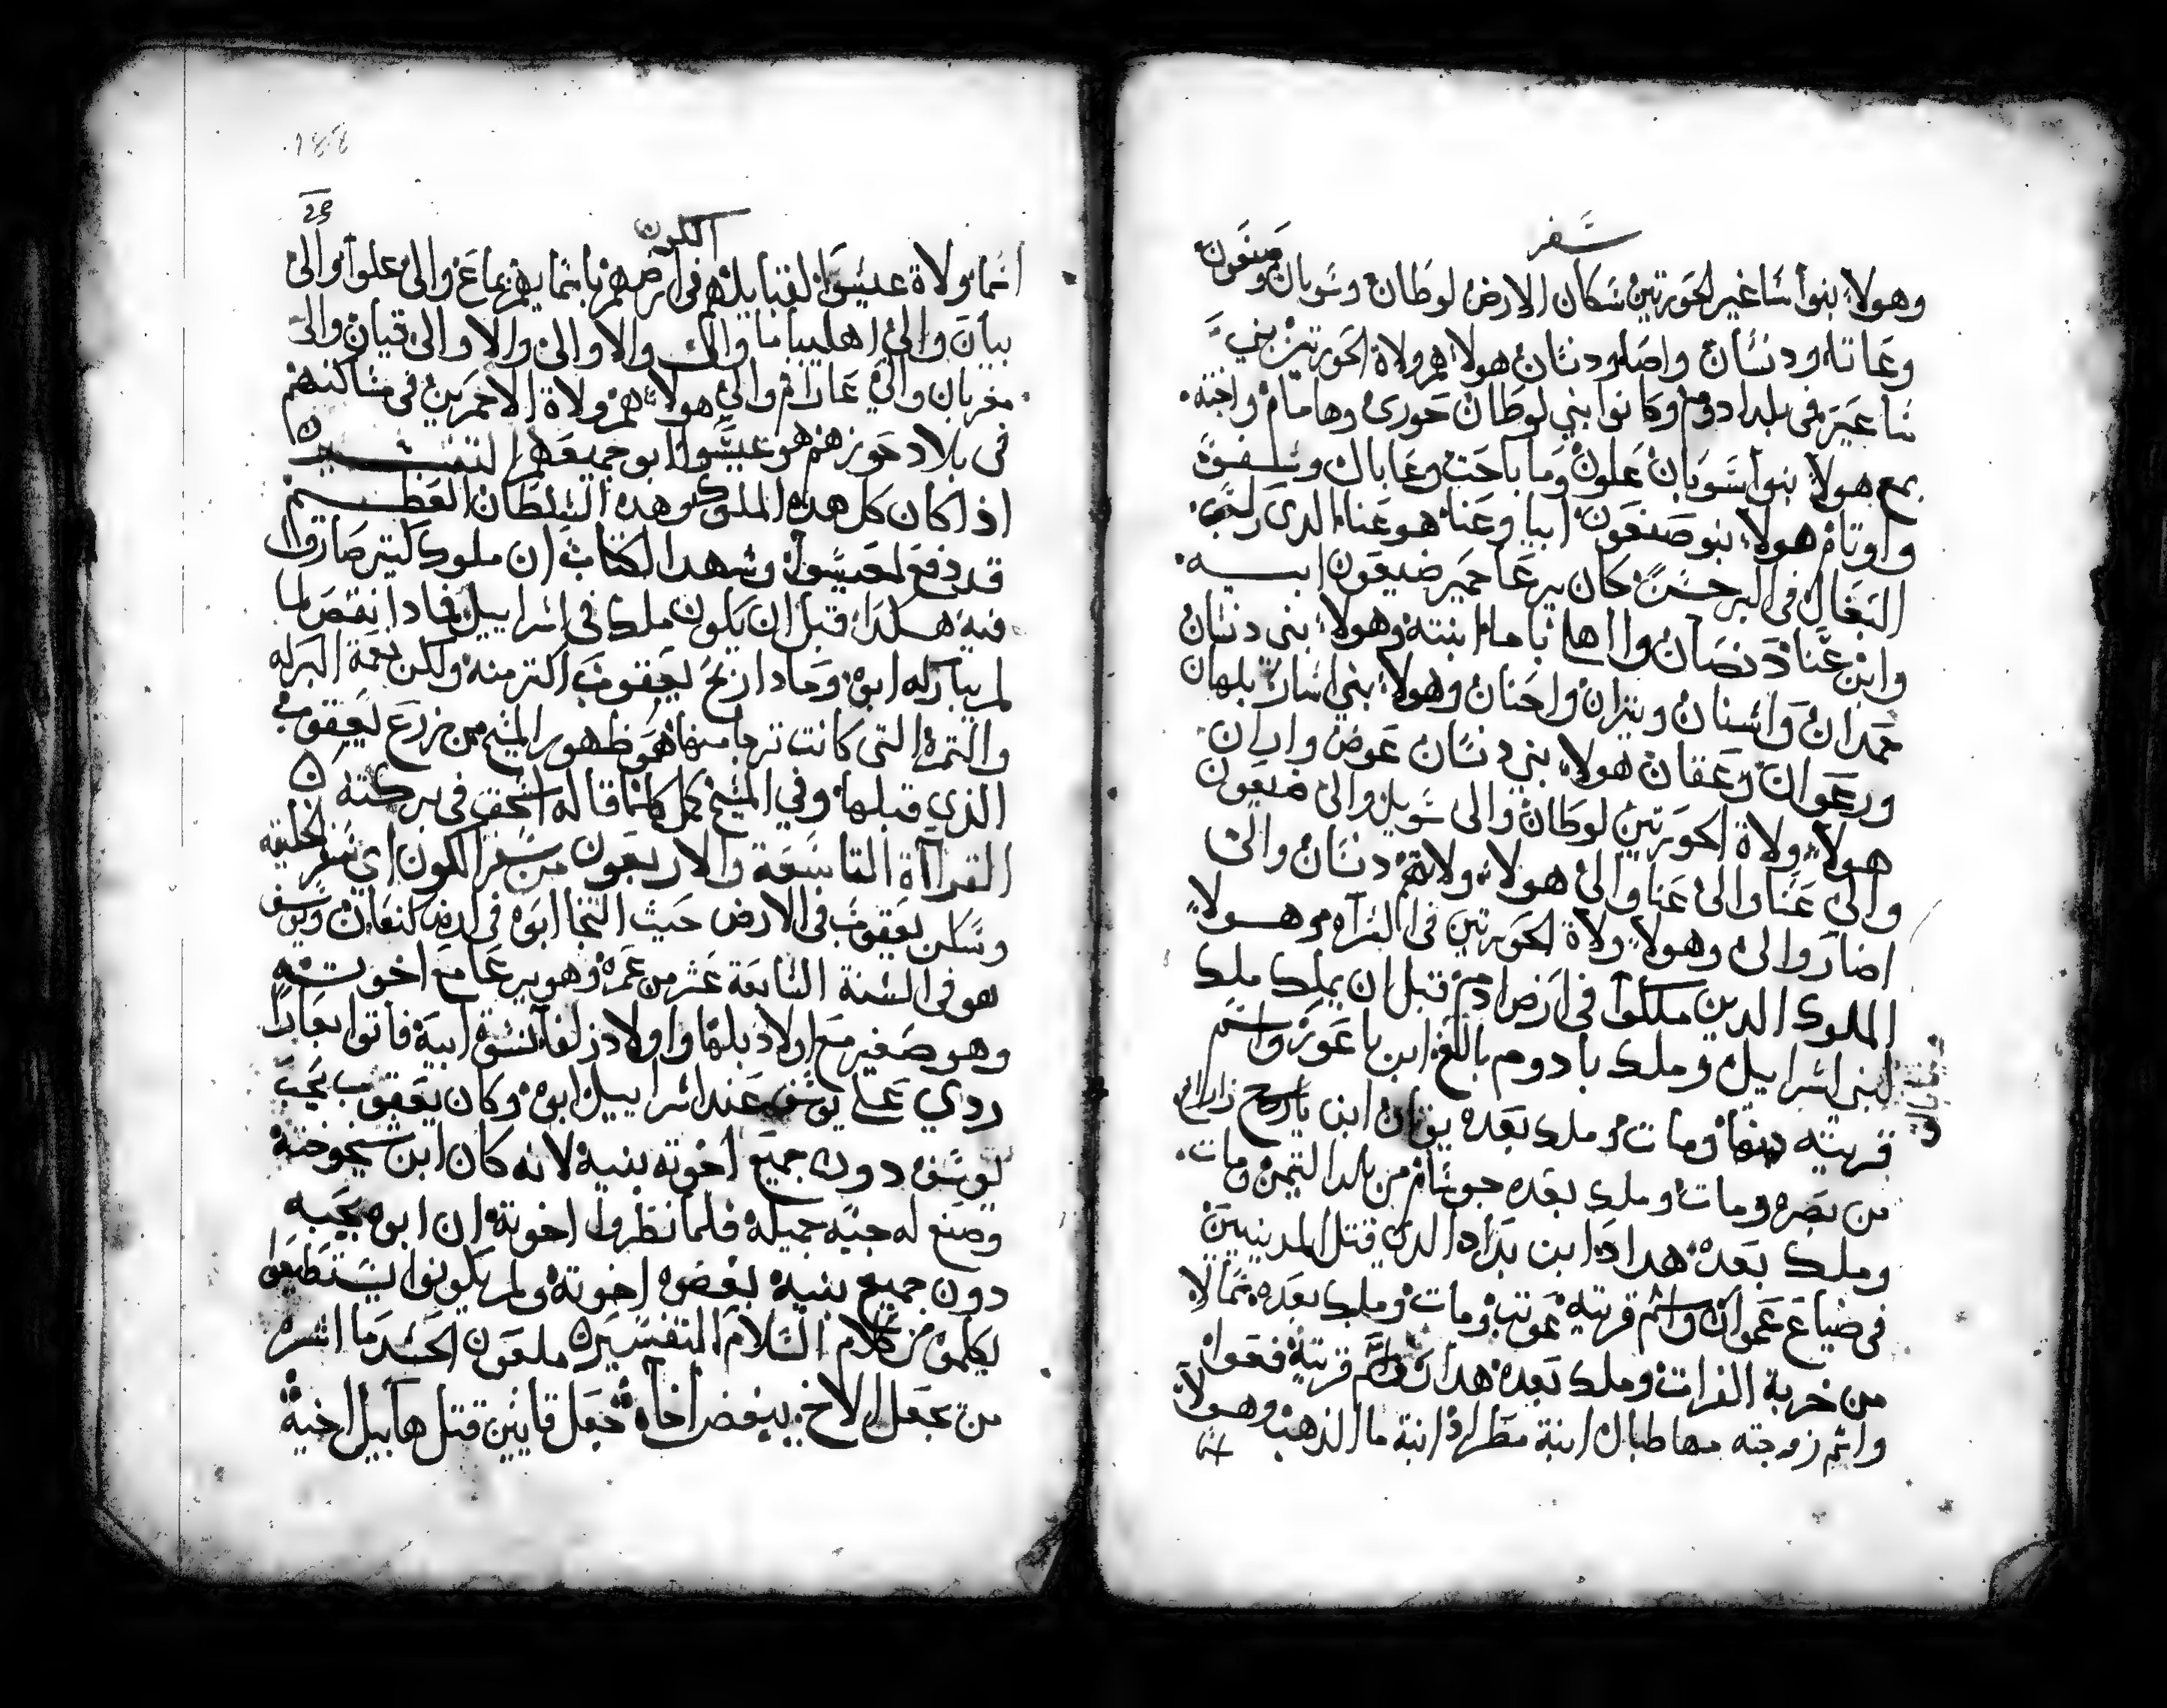 سفر
وهولاء بنوا ساغير الحورتين سكان الارض لوطان وسوبان وصنعون
وعاتاه ودنسان واصله ودنسان هولاء هم ولاة الحورتين بني
ساعير في بلد ادوم وكانوا بني لوطان حوري وهامام واخته
بمع هولاء بنوا سوبان علون وماباحت وعابال وسلفون
واوتام هولاء بنو صنعون ابيا وعنا هو عنا الدي راي
البغال في البر حين كان يرعا حمير ضبعون ابيه
وابن عنا دنصان واهليباما ابنته وهولاء بني دنسان
حمدان واسنان ويتران واحنان وهولاء بني اسار بلهان
ورعوان وعقان هولاء بني دنسان عوض واران
هولاء ولاة الحورتين لوطان والى سوبل والى ضبعون
والى عنا والى عنا والى هولاء ولاة دنسان والى
اضار والى وهولاء ولاة الحورتين في البراه وهولاء
الملوك الدين ملكوا في ارض ادوم قبل ان يملك ملك
لبني اسراييل وملك بادوم بالغ ابن باعوز واسم
قريته دنقا ومات وملك بعده يوبان ابن يارح
من بصره ومات وملك بعده جوشام من بلد التيمن ومات
وملك بعده هداد ابن بداد الدي قتل المدينيين
في ضياع عموان واسم قريته عوتب ومات وملك بعده شمالا
من خربة الفرات وملك بعده هدان واسم قريته فعوا
واسم زوجته مهاطبال ابنة مطراد ابنة ما الذهب وهولاء
الكون
اسما ولاة عيسوا لقبايلهم في ارضهم باسمايهم تماع والى علوا والى
بيان والى اهليباما والى والا والى والا والى قيان والى
مغربان والى عارام والى هولاء هم ولاة الاحمرين في مساكنهم
في بلاد حوزهم هو عيسوا ابو جميعهم التفسير
اذا كان كل هده الملوك وهده السلطان العظيم
قد دفع لعيسوا وشهد الكتاب ان ملوك كتير صاروا
فيه هكدا قبل ان يكون ملك في اسراييل فمادا نقص لما
لم يباركه ابوه ومادا اربح يعقوب اكتر منه ولكن نعمة البركه
والتمره التي كانت ترجا منها هو ظهور المسيح من زرع يعقوب
الذي قبلها وفي المسيح كمل كلما قاله اسحق في بركته
القراآة التاسعة والاربعون من سفر الكون اي سفر الخليقه
وسكن يعقوب في الارض حيت التجا ابوه في ارض كنعان ويوسف
هو في السنة السابعة عشر من عمره وهو يرعا مع اخوته
وهو صغير مع اولاد بلها واولاد زلفا نسوة ابيه فاتوا بعارا
ردي على يوسف عند اسراييل ابوه وكان يعقوب يحب
يوسف دون جميع اخوته بنيه لانه كان ابن شيخوخته
وصنع له جبه جميله فلما نظروا اخوته ان ابوه يحبه
دون جميع بنيه بغضوه اخوته ولم يكونوا يستطيعوا
يكلموه كلام السلام التفسير ملعون الحسد ما اشره
من يجعل الاخ يبغض اخاه جعل قايين قتل هابيل اخيه